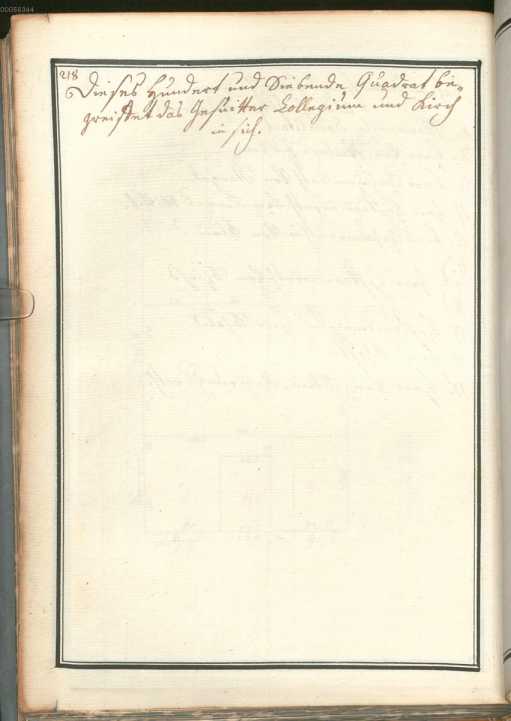 00056344
218
Dieses Hundert und Siebende Quadrat be„
greiffet das Jesuitter Collegium und Kirch
in sich.